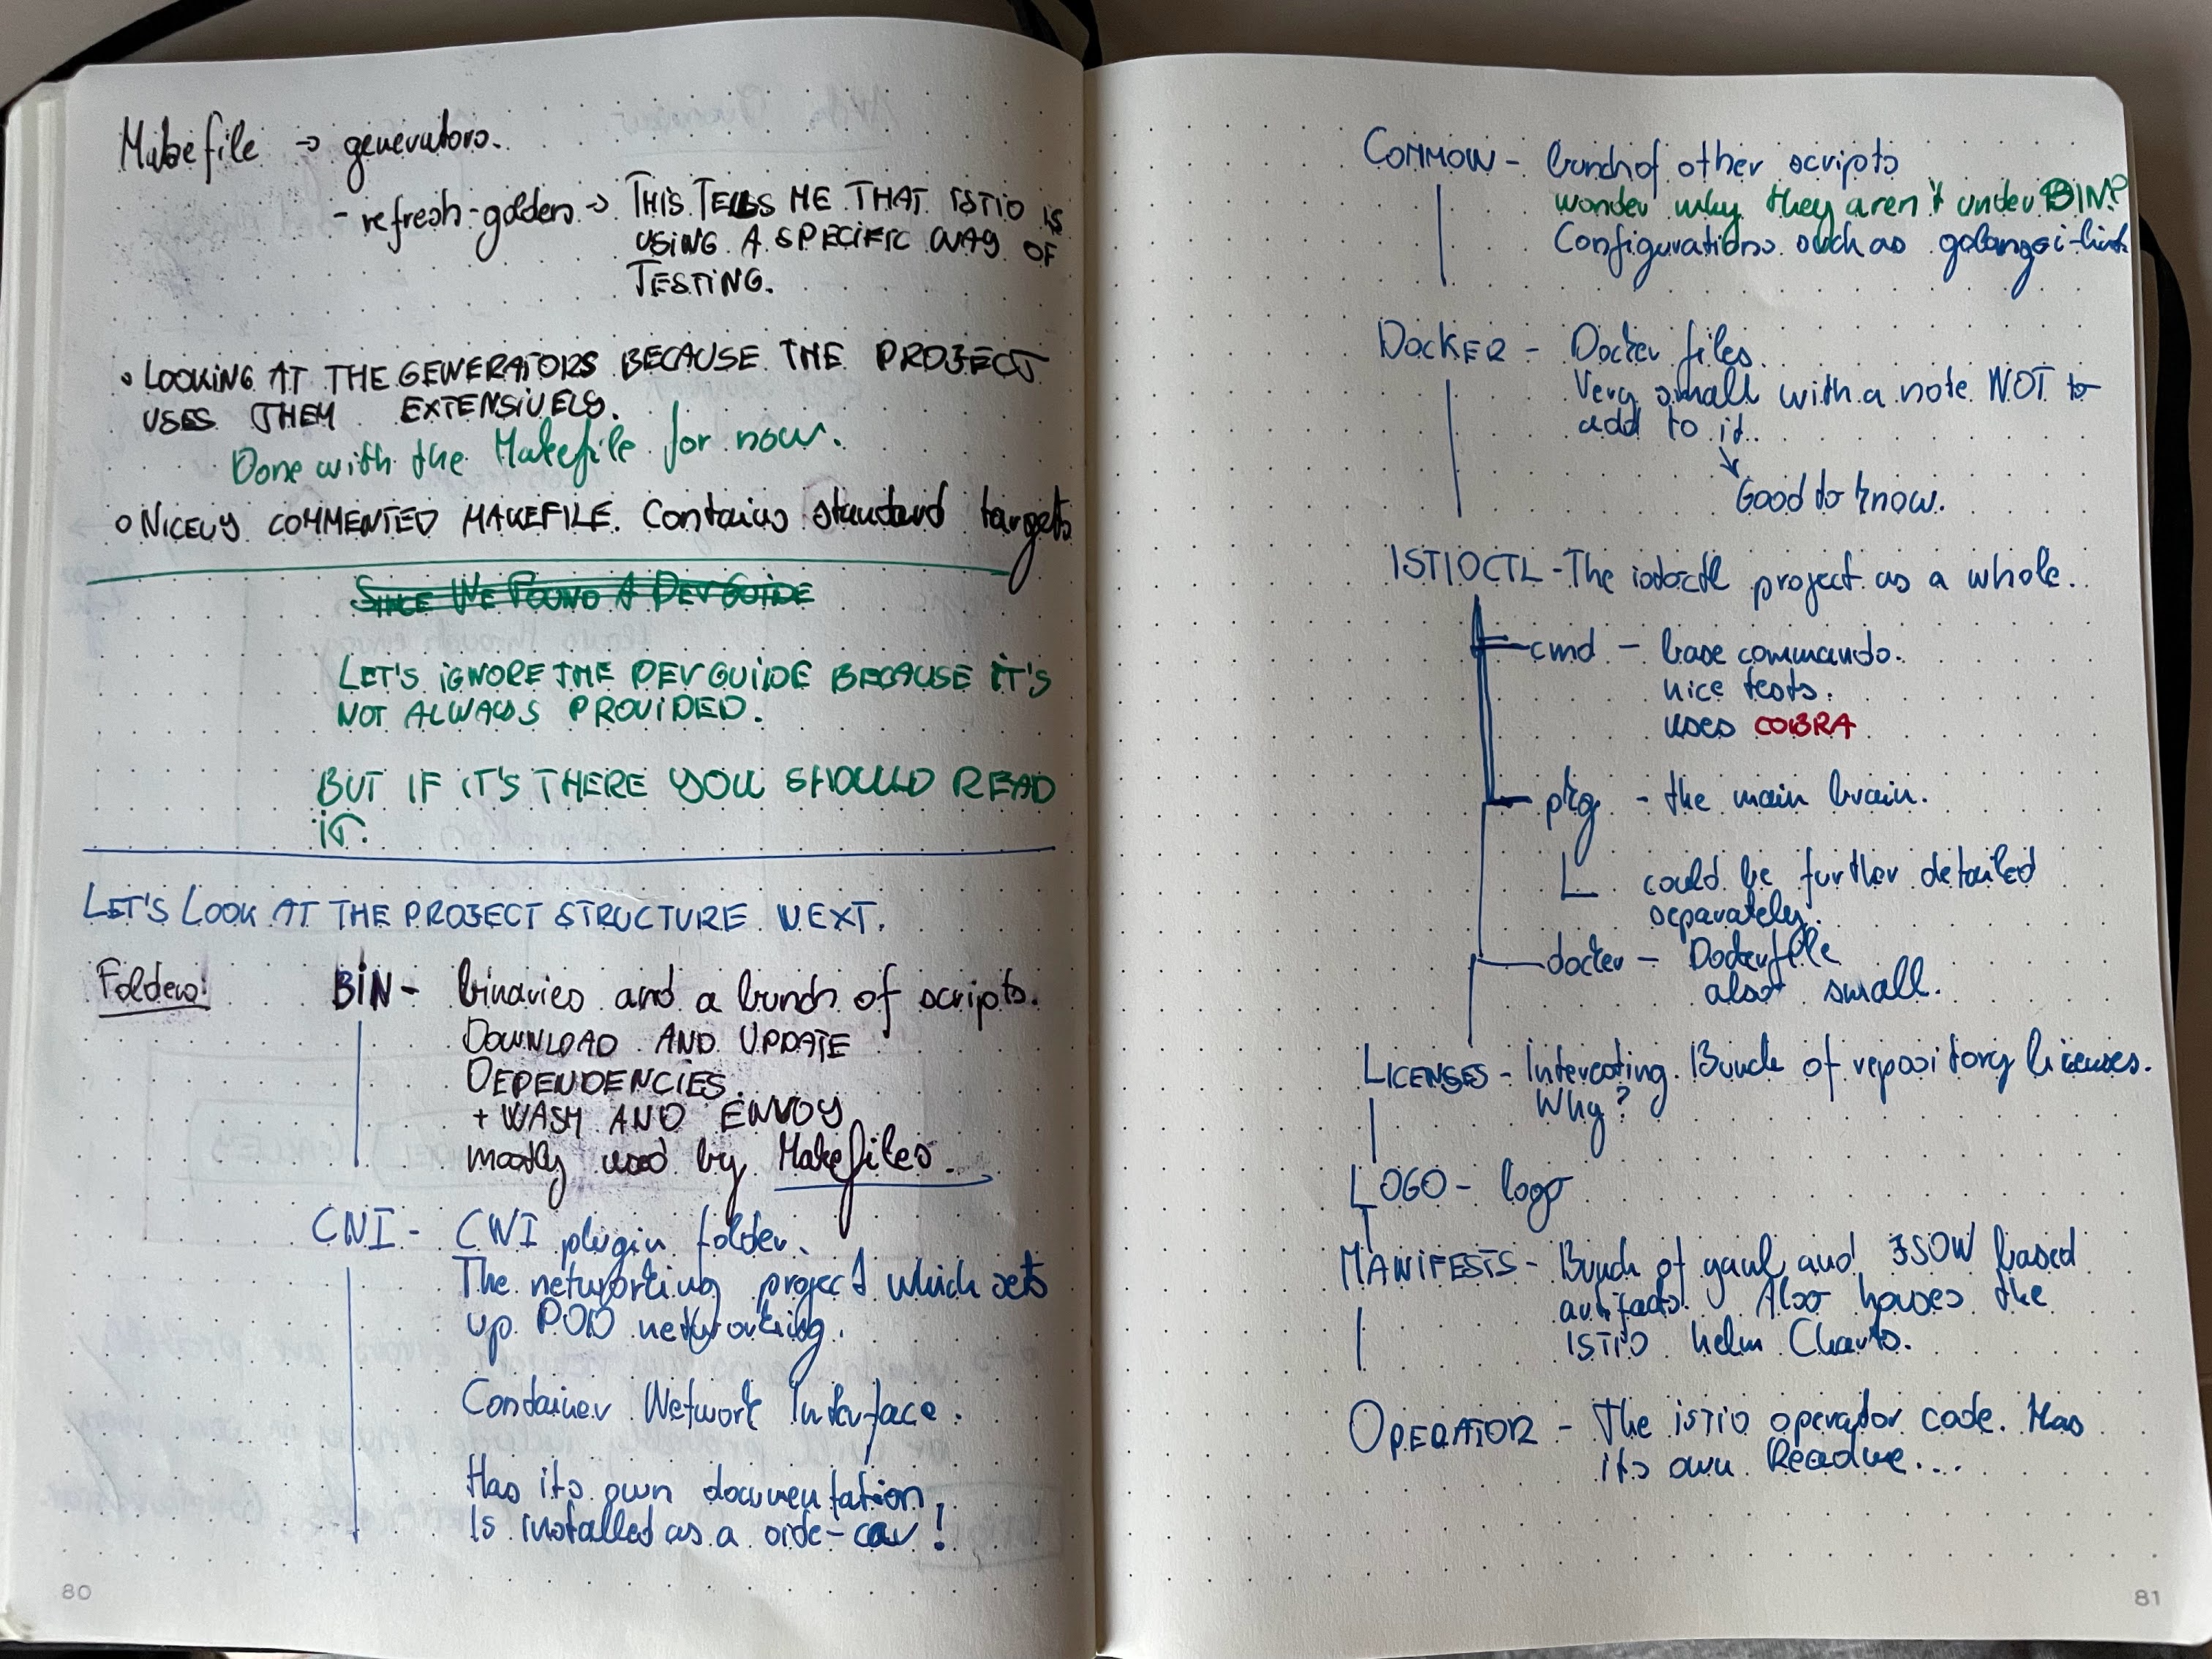 Makefile → generators.
- refresh-golden → THIS TELLS ME THAT ISTIO IS
USING A SPECIFIC WAY OF
TESTING.
• LOOKING AT THE GENERATORS BECAUSE THE PROJECT
USES THEM EXTENSIVELY.
Done with the Makefile for now.
• NICELY COMMENTED MAKEFILE. Contains standard targets
SINCE WE FOUND A DEV GUIDE
LET'S IGNORE THE DEV GUIDE BECAUSE IT'S
NOT ALWAYS PROVIDED.
BUT IF IT'S THERE YOU SHOULD READ
IT.
LET'S LOOK AT THE PROJECT STRUCTURE NEXT.
Folders:
BIN - binaries and a bunch of scripts.
DOWNLOAD AND UPDATE
DEPENDENCIES
+ WASM AND ENVOY
mostly used by Makefiles.
CNI - CNI plugin folder.
The networking project which sets
up POD networking.
Container Network Interface.
Has its own documentation
Is installed as a side-car!
80
COMMON - bunch of other scripts
wonder why they aren't under BIN?
Configurations such as golangci-lint
DOCKER - Docker files.
Very small with a note NOT to
add to it.
↘
Good to know.
ISTIOCTL - The istioctl project as a whole.
cmd - base commands.
nice tests.
uses COBRA
pkg - the main brain.
could be further detailed
separately.
docker - Dockerfile
also small.
LICENSES - Interesting. Bunch of repository licenses.
Why?
LOGO - logo
MANIFESTS - Bunch of yaml and JSON based
artifacts. Also houses the
ISTIO helm Charts.
OPERATOR - The istio operator code. Has
its own Readme...
81